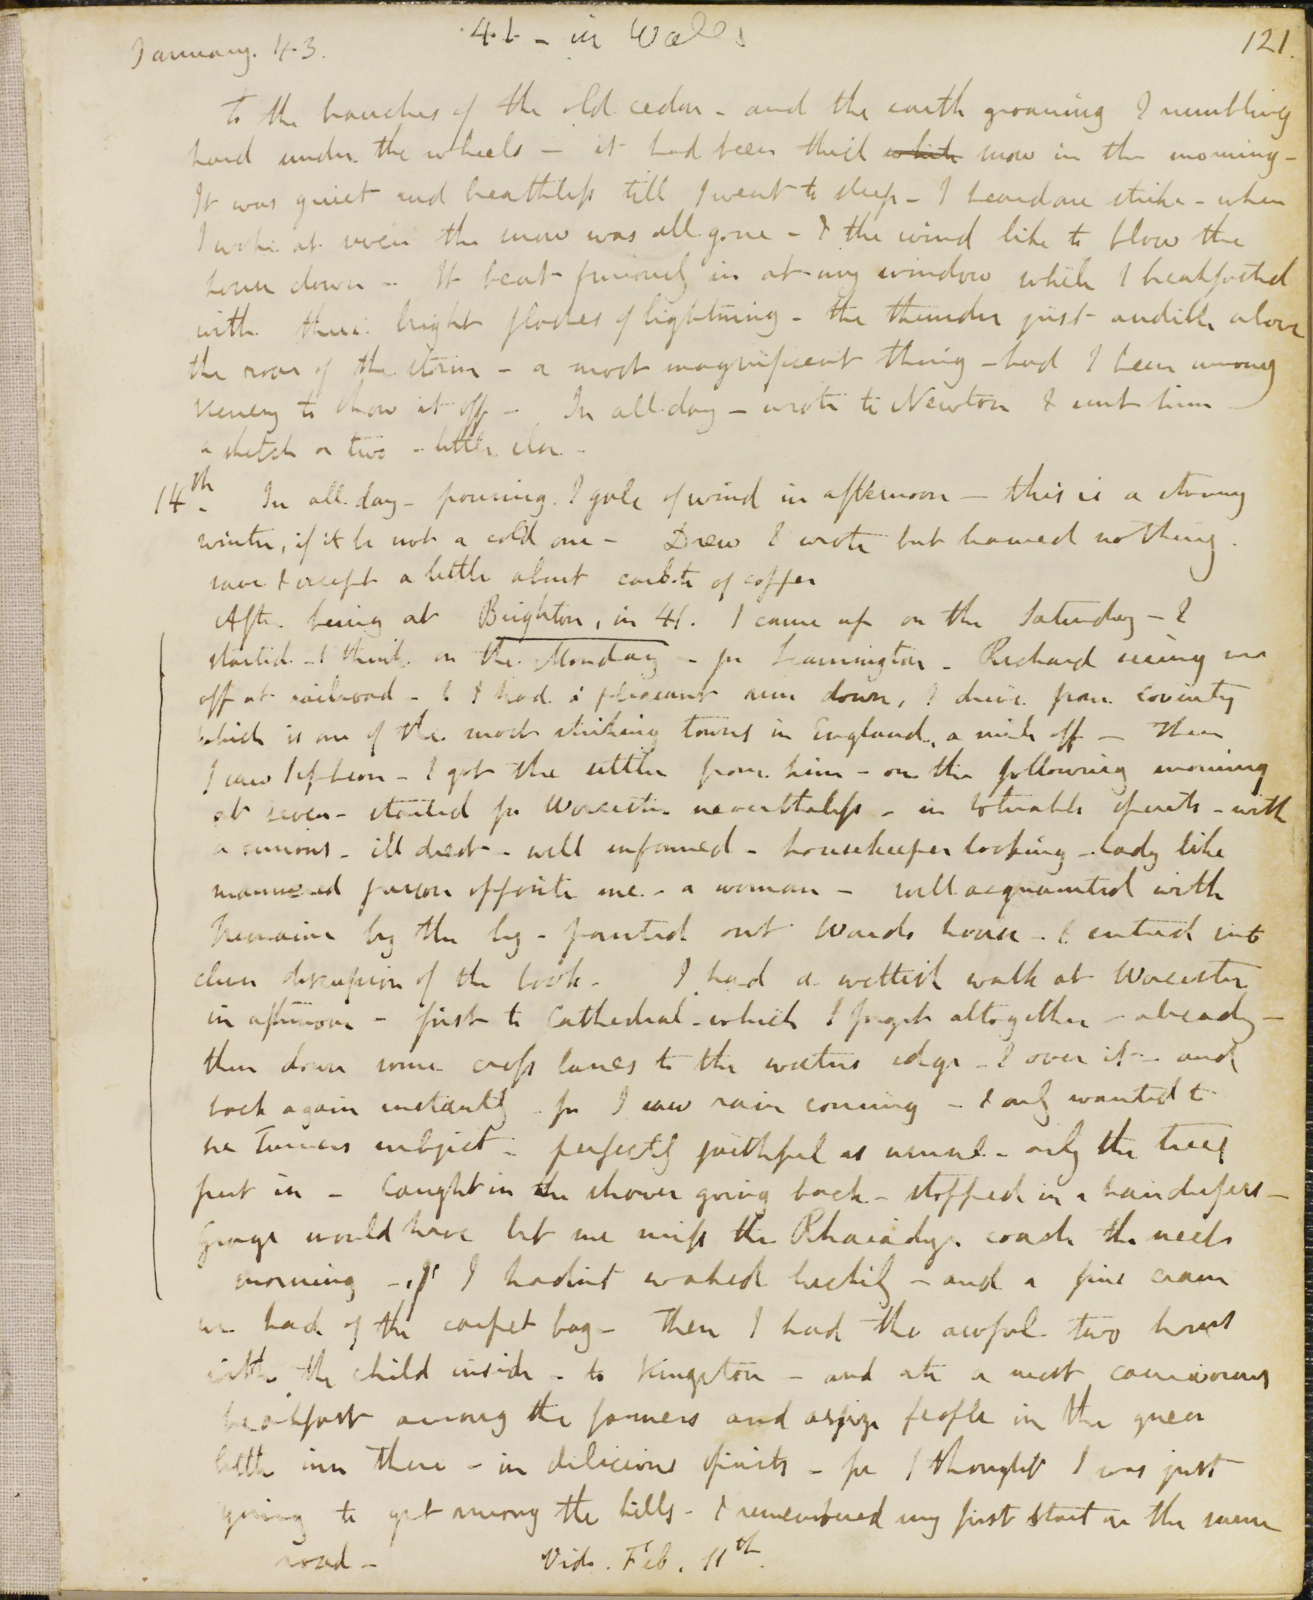 January. 43.
41 - in Wales
121.
to the branches of the old cedar - and the earth groaning & rumbling
hard under the wheels - it had been thick white snow in the morning -
It was quiet and breathless till I went to sleep - I heard one strike - when
I woke at seven the snow was all gone - & the wind like to blow the
house down - It beat furiously in at my window while I breakfasted
with three bright flashes of lightning - the thunder just audible above
the roar of the storm - a most magnificent thing - had I been among
scenery to show it off - In all day - wrote to Newton & sent him
a sketch or two - little else -
14th. In all day - pouring. & gale of wind in afternoon - this is a strong
winter, if it be not a cold one - Drew & wrote but learned nothing.
save & except a little about carb.te of copper
After being at Brighton, in 41. I came up on the Saturday - &
started - I think on the Monday - for Leamington - Richard seeing me
off at railroad - & I had a pleasant run down, & drive from Coventry
which is one of the most striking towns in England, a mile off - Then
I saw Jephson - I got the settler from him - on the following morning
at seven - started for Worcester nevertheless - in tolerable spirits - with
a curious - ill drest - well informed - housekeeper looking - lady like
mannered person opposite me - a woman - well acquainted with
Tremaine by the by - pointed out Wards house - & entered into
clever discussion of the book - I had a wettish walk at Worcester
in afternoon - first to Cathedral - which I forget altogether - already -
then down some cross lanes to the waters edge - & over it - and
back again instantly - for I saw rain coming - & only wanted to
see Turners subject - perfectly faithful as usual - only the trees
put in - Caught in the shower going back - stopped in a hairdressers -
George would have let me miss the Rhaiadyr coach the next
morning - if I hadn't waked luckily - and a fine cram
we had of the carpet bag - Then I had the awful two hours
with the child inside - to Kington - and ate a most carnivorous
breakfast among the farmers and assize people in the queer
little inn there - in delicious spirits - for I thought I was just
going to get among the hills - & remembered my first start on the same
road - Vid. Feb. 11th.